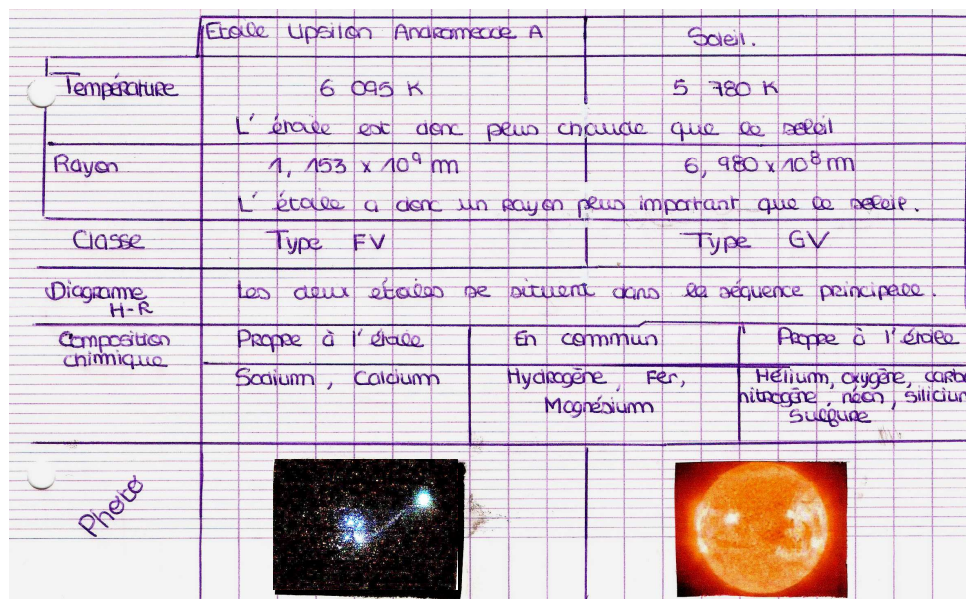 Etoile Upsilon Andromede A Soleil.
Température 6 095 K 5 780 K
L'étoile est donc plus chaude que le soleil
Rayon 1,153 x 10⁹ m 6,980 x 10⁸ m
L'étoile a donc un rayon plus important que le soleil.
Classe Type FV Type GV
Diagramme H-R Les deux etoiles se situent dans la séquence principale.
Composition chimique Propre à l'étoile En commun Propre à l'étoile
Sodium, Calcium Hydrogène, Fer, Hélium, oxygène, carbo
Magnésium nitrogène, néon, silicium
sulfure
Photo